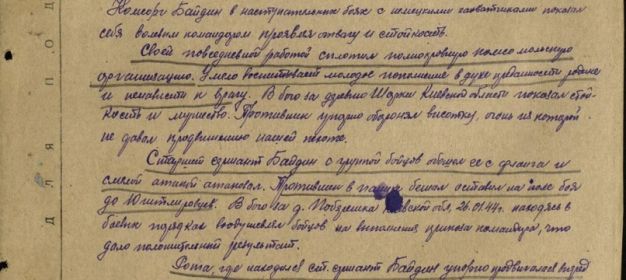 Комсорг Байдин в наступательных боях с немецкими захватчиками показал
себя волевым командиром проявляя отвагу и стойкость.
Своей повседневной работой сплотил полнокровную комсомольскую
организацию. Умело воспитывает молодое пополнение в духе преданности родине
и ненависти к врагу. В бою за деревню Киевской области показал стой-
кость и мужество. Противник упорно оборонял высотку, огонь из которой
не давал продвижению нашей пехоте.
Старший сержант Байдин с группой бойцов обошел ее с фланга и
смелой атакой атаковал. Противник в панике бежал оставив на поле боя
до 10 гитлеровцев. В бою за д. обл. 26.01.44г. находясь в
боевых порядках воодушевлял бойцов на выполнение приказа командира, что
дало положительный результат.
Рота, где находился ст. сержант Байдин упорно продвигалась вперед
ДЛЯ ПОД